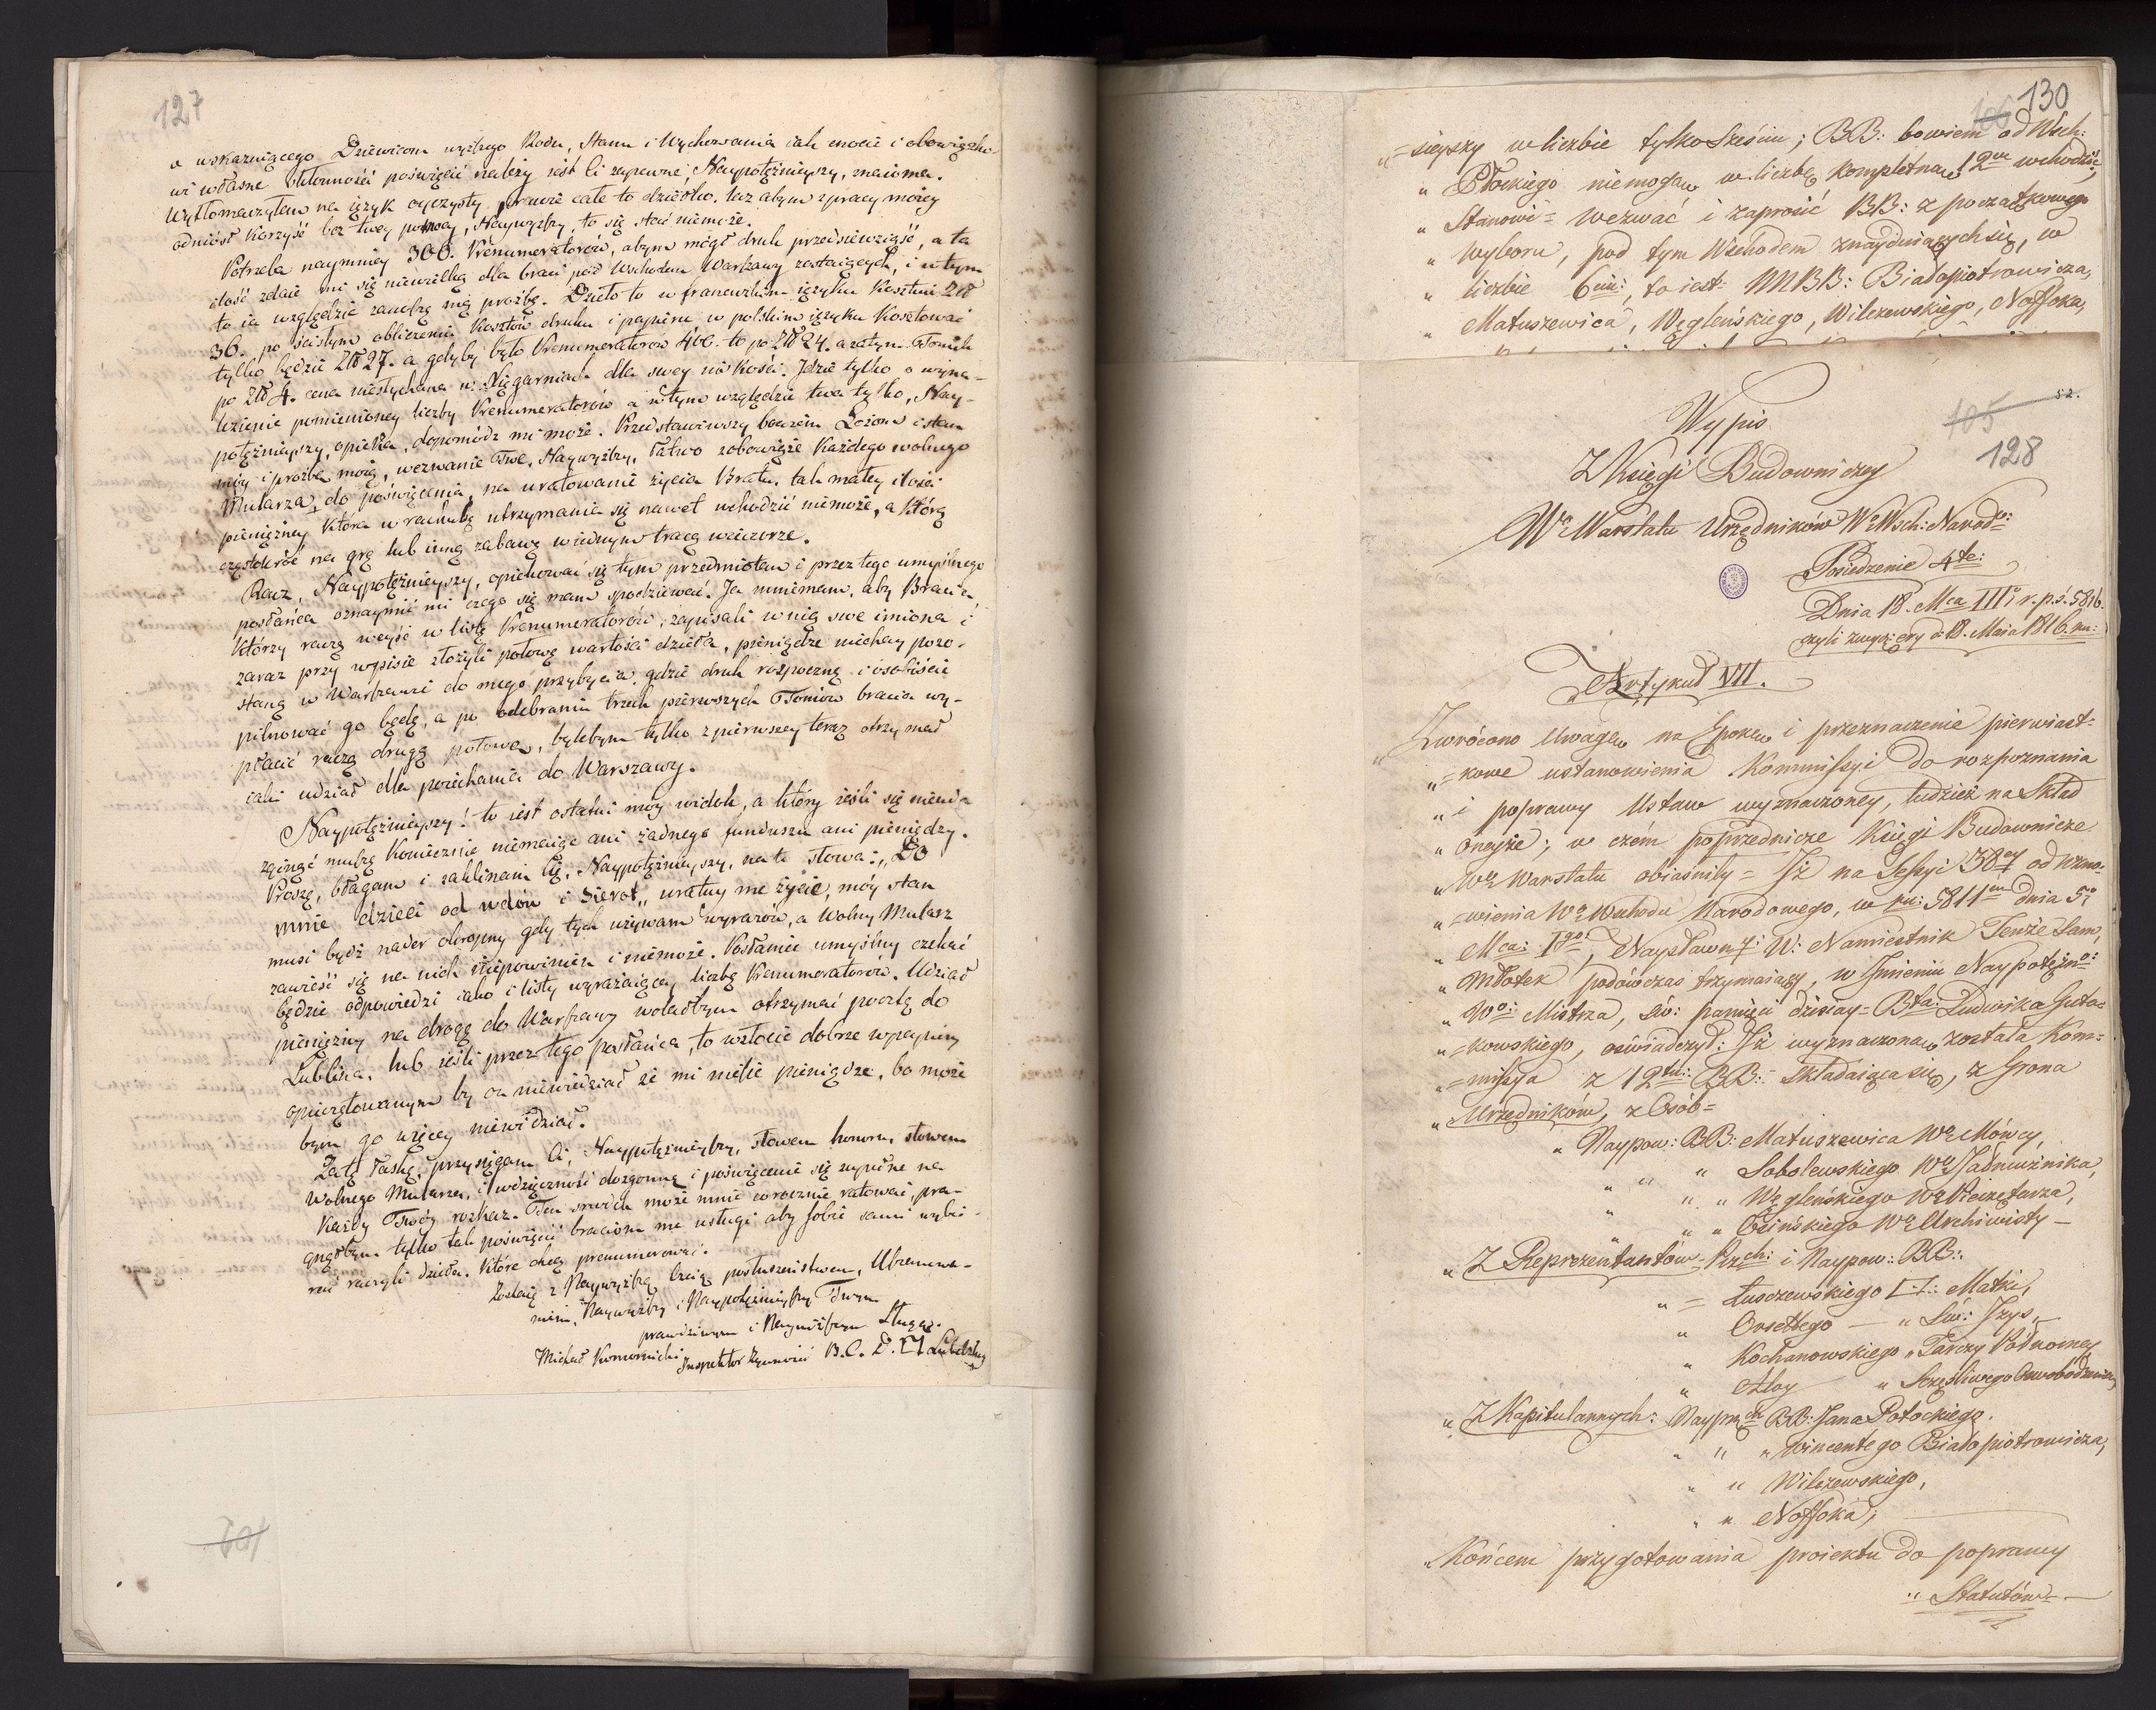 127
a wskazuiącego Dziewicom wyższego Rodu, Stanu i Wychowania iak cnocie i obowiązko-
wi własne skłonności poświęcić należy iest Ci zapewne, Naypotężnieyszy, znaioma.
Wytłomaczyłem na ięzyk oyczysty prawie całe to dziełko, lecz abym z pracy moiey
odniósł korzyść bez twey pomocy, Naywyższy, to się stać niemoże.
Potrzeba naymniey 300. Prenumeratorów, abym mógł druk przedsiewziąść, a ta
ilość zdaie mi się niewielką dla braci pod Wschodem Warszawy zostaiących, i w tym
to ia względzie zanoszę mą prośbę. Dzieło to w francuzkim ięzyku kosztuie Złł
36. po ścisłym obliczeniu kosztów druku i papieru w polskim ięzyku kosztować
tylko będzie Złł 27. a gdyby było Prenumeratorów 400. to po Złł 24. a zatym Tomik
po Złł 4. cena niesłychana w Xięgarniach dla swey niskości. Idzie tylko o wyna-
lezienie pomienioney liczby Prenumeratorów a w tym względzie twa tylko, Nay-
potężnieyszy, opieka dopomódz mi może. Przedstawiwszy bowiem Lożom stan
móy i prośbę moią, wezwanie Twe, Naywyższy, łatwo zobowiąże każdego wolnego
Mularza do poświęcenia, na uratowanie życia Brata, tak małey ilości
pieniężney która w rachubę utrzymania się nawet wchodzić niemoże, a którą
częstokroć na grę lub inną zabawę w iednym tracą wieczorze.
Racz, Naypotężnieyszy, opiekować się tym przedmiotem i przez tego umyślnego
posłańca oznaymić mi czego się mam spodziewać. Ja mniemam, aby Bracia
którzy raczą weyść w listę Prenumeratorów, zapisali w nią swe imiona i
zaraz przy wpisie złożyli połowę wartości dzieła, pieniądze niechay pozo-
staną w Warszawie do mego przybycia, gdzie druk rozpocznę i osobiście
pilnować go będę, a po odebraniu trzech pierwszych Tomów bracia wy-
płacić raczą drugą połowę, bylebym tylko z pierwszey teraz otrzymał
iaki udział dla poiechania do Warszawy.
Naypotężnieyszy! to iest ostatni móy widok, a który ieśli się nieuda
zginąć muszę koniecznie niemaiąc ani żadnego funduszu ani pieniędzy.
Proszę, błagam i zaklinam Cię, Naypotężnieyszy, na te słowa: „Do
mnie dzieci od wdów i Sierot„ uratuy me życie, móy stan
musi bydź nader okropny gdy tych używam wyrazów, a Wolny Mularz
zawieść się na nich niepowinien i niemoże. Posłaniec umyślny czekać
będzie odpowiedzi iako i listy wyrażaiącey liczbę Prenumeratorów. Udział
pieniężny na drogę do Warszawy wolałbym otrzymać pocztą do
Lublina, lub ieśli przez tego posłańca, to w zlocie dobrze w papiery
opieczętowanym by on niewiedział że mi niesie pieniądze, bo może
bym go więcey niewidział.
Za tę łaskę przysięgam Ci, Naypotężnieyszy, słowem honoru, słowem
Wolnego Mularza, i wdzięczność dozgonną i poświęcenie się zupełne na
każdy Twóy rozkaz. Ten srodek może mnie corocznie ratować, pra-
gnąłbym tylko tak poświęcić braciom me usługi aby sobie sami wybie-
rać raczyli dzieła które chcą prenumerować.
Zostaię z Naywyższą Czcią posłuszeństwem, Uszanowa-
niem, Naywyższy i Naypotężnieyszy Twym
prawdziwym i Nayniższym Sługą.
Michał Komornicki Inspektor Żywności B. C. D. Lubelskiey
107
106 130
„=sieyszy w liczbie tylko Sześciu; BB: bowiem od Wsch:
„ Płockiego niemogą w liczbę kompletną 12tu wchodzić,
„ Stanowi= wezwać i zaprosić BB: z początkowego
„ wyboru, pod tym Wschodem znayduiących się, w
„ liczbie 6ciu:, to iest: MBB: Białopiotrowicza,
„ Matuszewica, Węgleńskiego, Wilczewskiego, Noffoka,
52.
105
128
Wypis
Z Księgi Budowniczey
Wo Warstatu Urzędników Wo Wsch: Narodo:
Posiedzenie 4te:
Dnia 18. Mca IIIo r.p.ś. 5816.
czyli zwyczay: d: 18. Maia 1816. ru:
Artykuł VII.
„ Zwrócono Uwagę na Epokę i przeznaczenie pierwiast-
„=kowe ustanowienia Kommissyi do rozpoznania
„ i poprawy Ustaw wyznaczoney, tudzież na Skład
„ oneyże; w czém poprzednicze Księgi Budownicze
„ Wo Warstatu obiaśniły= Iż na Sessyi 38ey od wzno-
„=wienia Wo Wschodu Narodowego, w ru: 5811m dnia 5o
„ Mca: Igo:, Naysławny: W: Namiestnik Tenże Sam,
„ Młotek podówczas trzymaiący, w Imieniu Naypotężno:
„ Wo: Mistrza, św: pamięci dzisiay= Bta: Ludwika Guta-
„=kowskiego, oświadczył: Iż wyznaczoną została Kom-
„=missya z 12tu: BB: składaiąca się, z Grona
„ Urzędników, z Osób=
„ Naypow: BB: Matuszewica Wo Mówcy,
„ „ Sobolewskiego Wo Jałmużnika,
„ „ „ Węgleńskiego Wo Pieczętarza,
„ „ „ Osińskiego Wo Archiwisty—
„ Z Reprezentantów= Prz:ch: i Naypow: BB:
„ = Łuszczewskiego: Matki,
„ Orsettego — „ Św: Izys,—
„ Kochanowskiego „ Tarczy Północney,
„ Azlay „ Szczęśliwego Oswobodzenia,
„ Z Kapitularnych: Nayprz:ch BB: Jana Potockiego.
„ „ „ Wincentego Białopiotrowicza,
„ „ Wilczewskiego,
„ „ Noffoka;
„ Końcem przygotowania proiektu do poprawy
„ Statutów=—